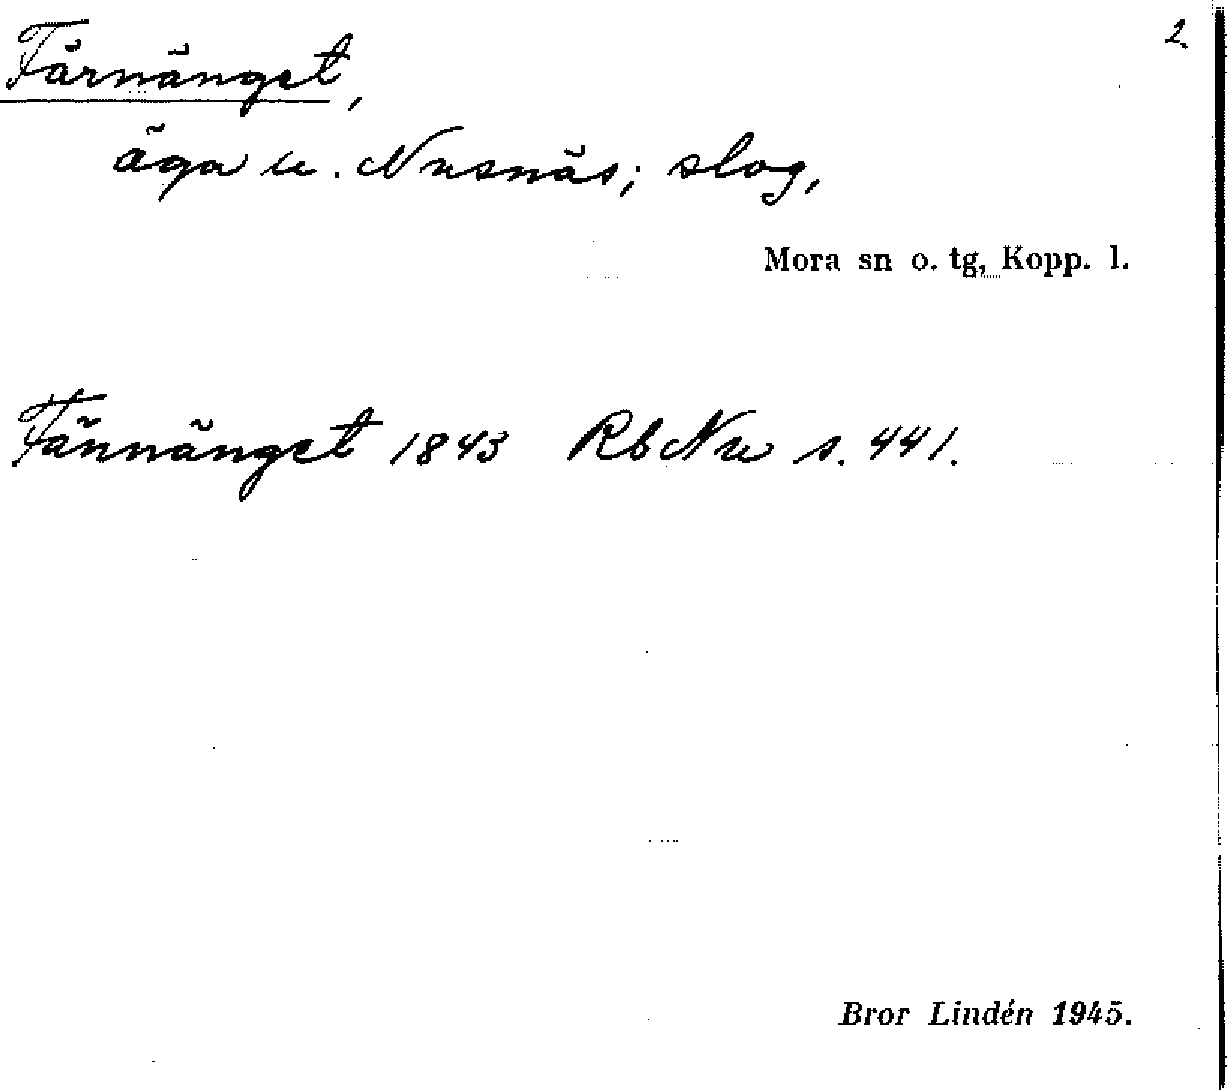 2.
Tärnänget,
äga u. Nusnäs; slog,
Mora sn o. tg, Kopp. l.
Tännänget 1843 Rb Nu s. 441.
Bror Lindén 1945.